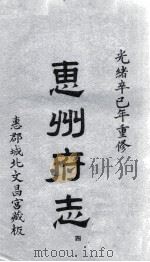 光緒辛巳年重修
惠州府志
四
惠郡城北文昌宮藏板
mtoou.info